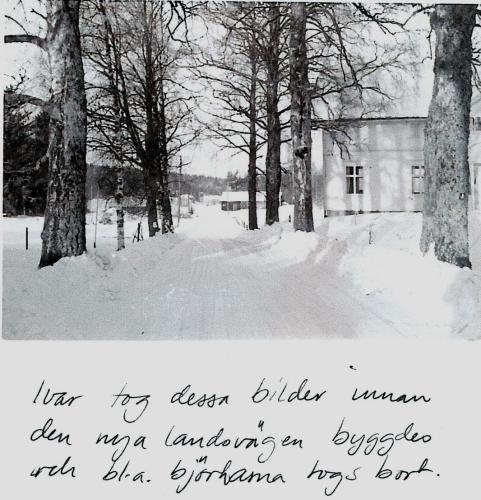 Ivar tog dessa bilder innan
den nya landsvägen byggdes
och bl.a. björkarna togs bort.